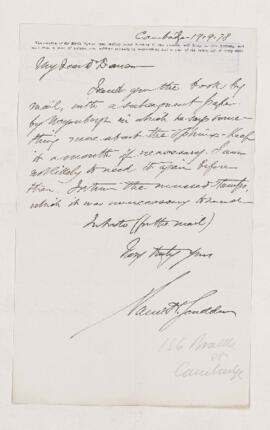 Cambridge 19.9.78
My dear Mr Darwin
I send you the book by
mail, with a subsequent paper
by Weyenbergh in which he says some-
thing more about the Sphinx. Keep
it a month if necessary. I am
not likely to need it again before
then. I return the unused stamps,
which it was unnecessary to send
In haste (for the mail)
Very truly yours
Samuel H. Scudder
156 Brattle
St
Cambridge